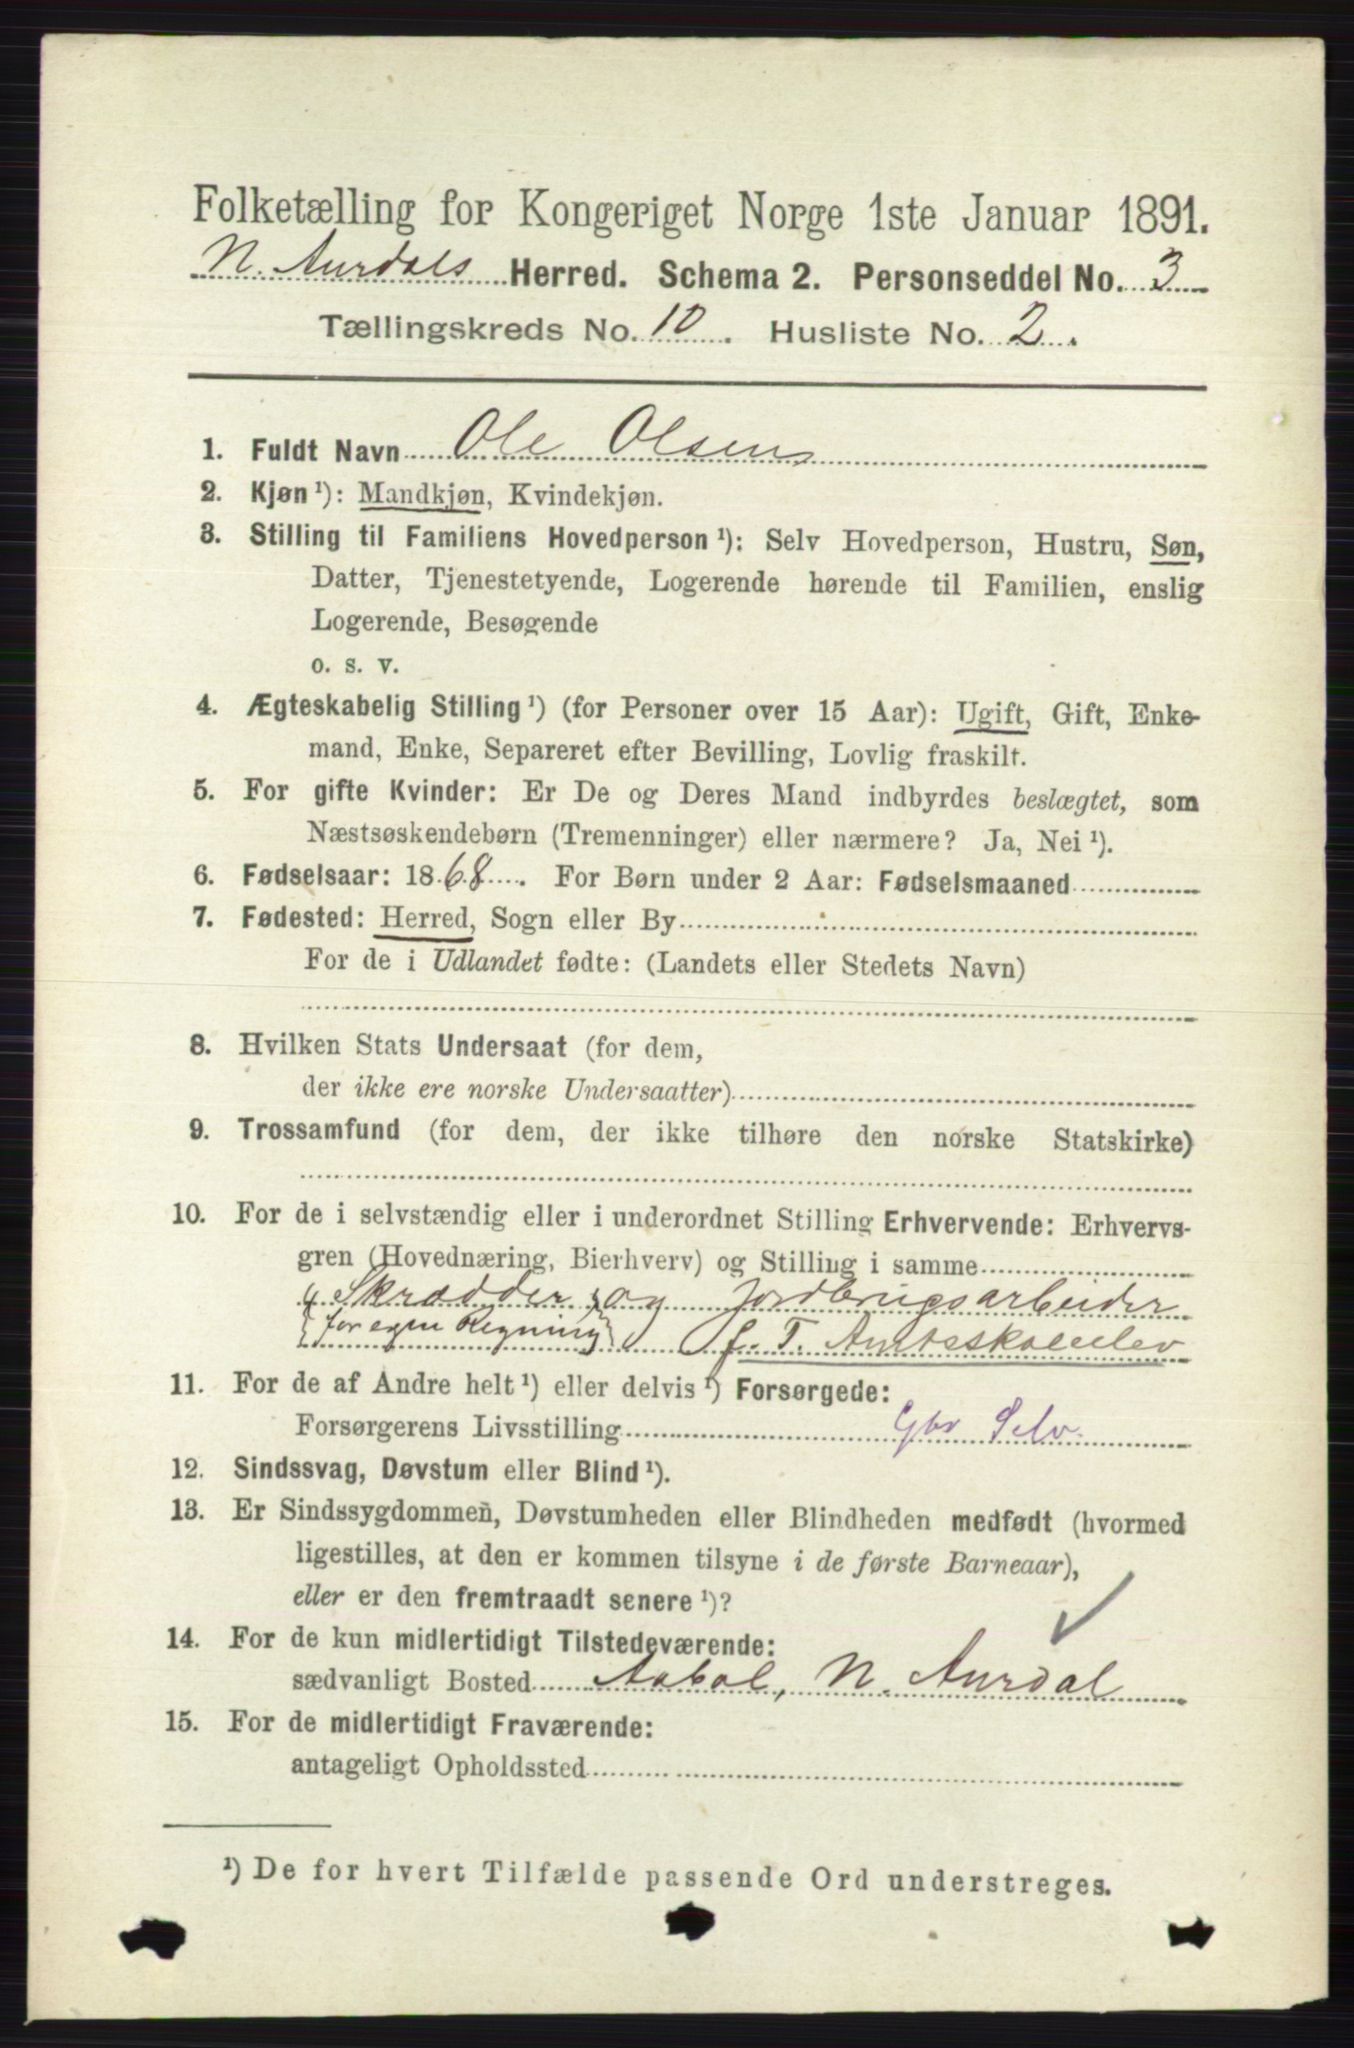 Folketælling for Kongeriget Norge 1ste Januar 1891.
N. Aurdals Herred. Schema 2. Personseddel No. 3
Tællingskreds No. 10. Husliste No. 2.
1. Fuldt Navn Ole Olsen
2. Kjøn ¹): Mandkjøn, Kvindekjøn.
3. Stilling til Familiens Hovedperson ¹): Selv Hovedperson, Hustru, Søn,
Datter, Tjenestetyende, Logerende hørende til Familien, enslig
Logerende, Besøgende
o. s. v.
4. Ægteskabelig Stilling ¹) (for Personer over 15 Aar): Ugift, Gift, Enke-
mand, Enke, Separeret efter Bevilling, Lovlig fraskilt.
5. For gifte Kvinder: Er De og Deres Mand indbyrdes beslægtet, som
Næstsøskendebørn (Tremenninger) eller nærmere? Ja, Nei ¹).
6. Fødselsaar: 1868. For Børn under 2 Aar: Fødselsmaaned
7. Fødested: Herred, Sogn eller By
For de i Udlandet fødte: (Landets eller Stedets Navn)
8. Hvilken Stats Undersaat (for dem,
der ikke ere norske Undersaatter)
9. Trossamfund (for dem, der ikke tilhøre den norske Statskirke)
10. For de i selvstændig eller i underordnet Stilling Erhvervende: Erhvervs-
gren (Hovednæring, Bierhverv) og Stilling i samme
Skrædder og Jordbrugsarbeider
for egen Regning f. T. Amtsskoleelev
11. For de af Andre helt ¹) eller delvis ¹) Forsørgede:
Forsørgerens Livsstilling Gbr Selv.
12. Sindssvag, Døvstum eller Blind ¹).
13. Er Sindssygdommen, Døvstumheden eller Blindheden medfødt (hvormed
ligestilles, at den er kommen tilsyne i de første Barneaar),
eller er den fremtraadt senere ¹)?
14. For de kun midlertidigt Tilstedeværende:
sædvanligt Bosted Aabol, N. Aurdal
15. For de midlertidigt Fraværende:
antageligt Opholdssted
¹) De for hvert Tilfælde passende Ord understreges.